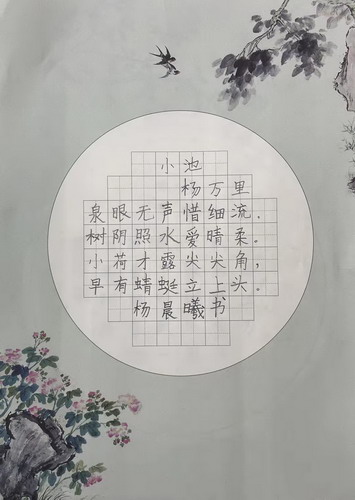 小池
杨万里
泉眼无声惜细流.
树阴照水爱晴柔。
小荷才露尖尖角,
早有蜻蜓立上头.
杨晨曦书